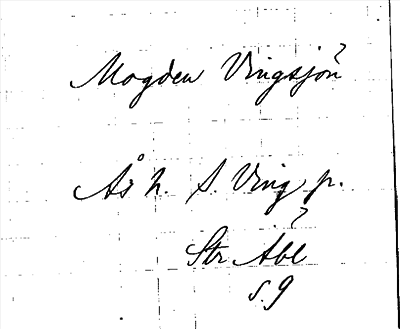 Mogden Vingsjön ?
Ås h. S. Ving p.
?
Str Abl
s. 9